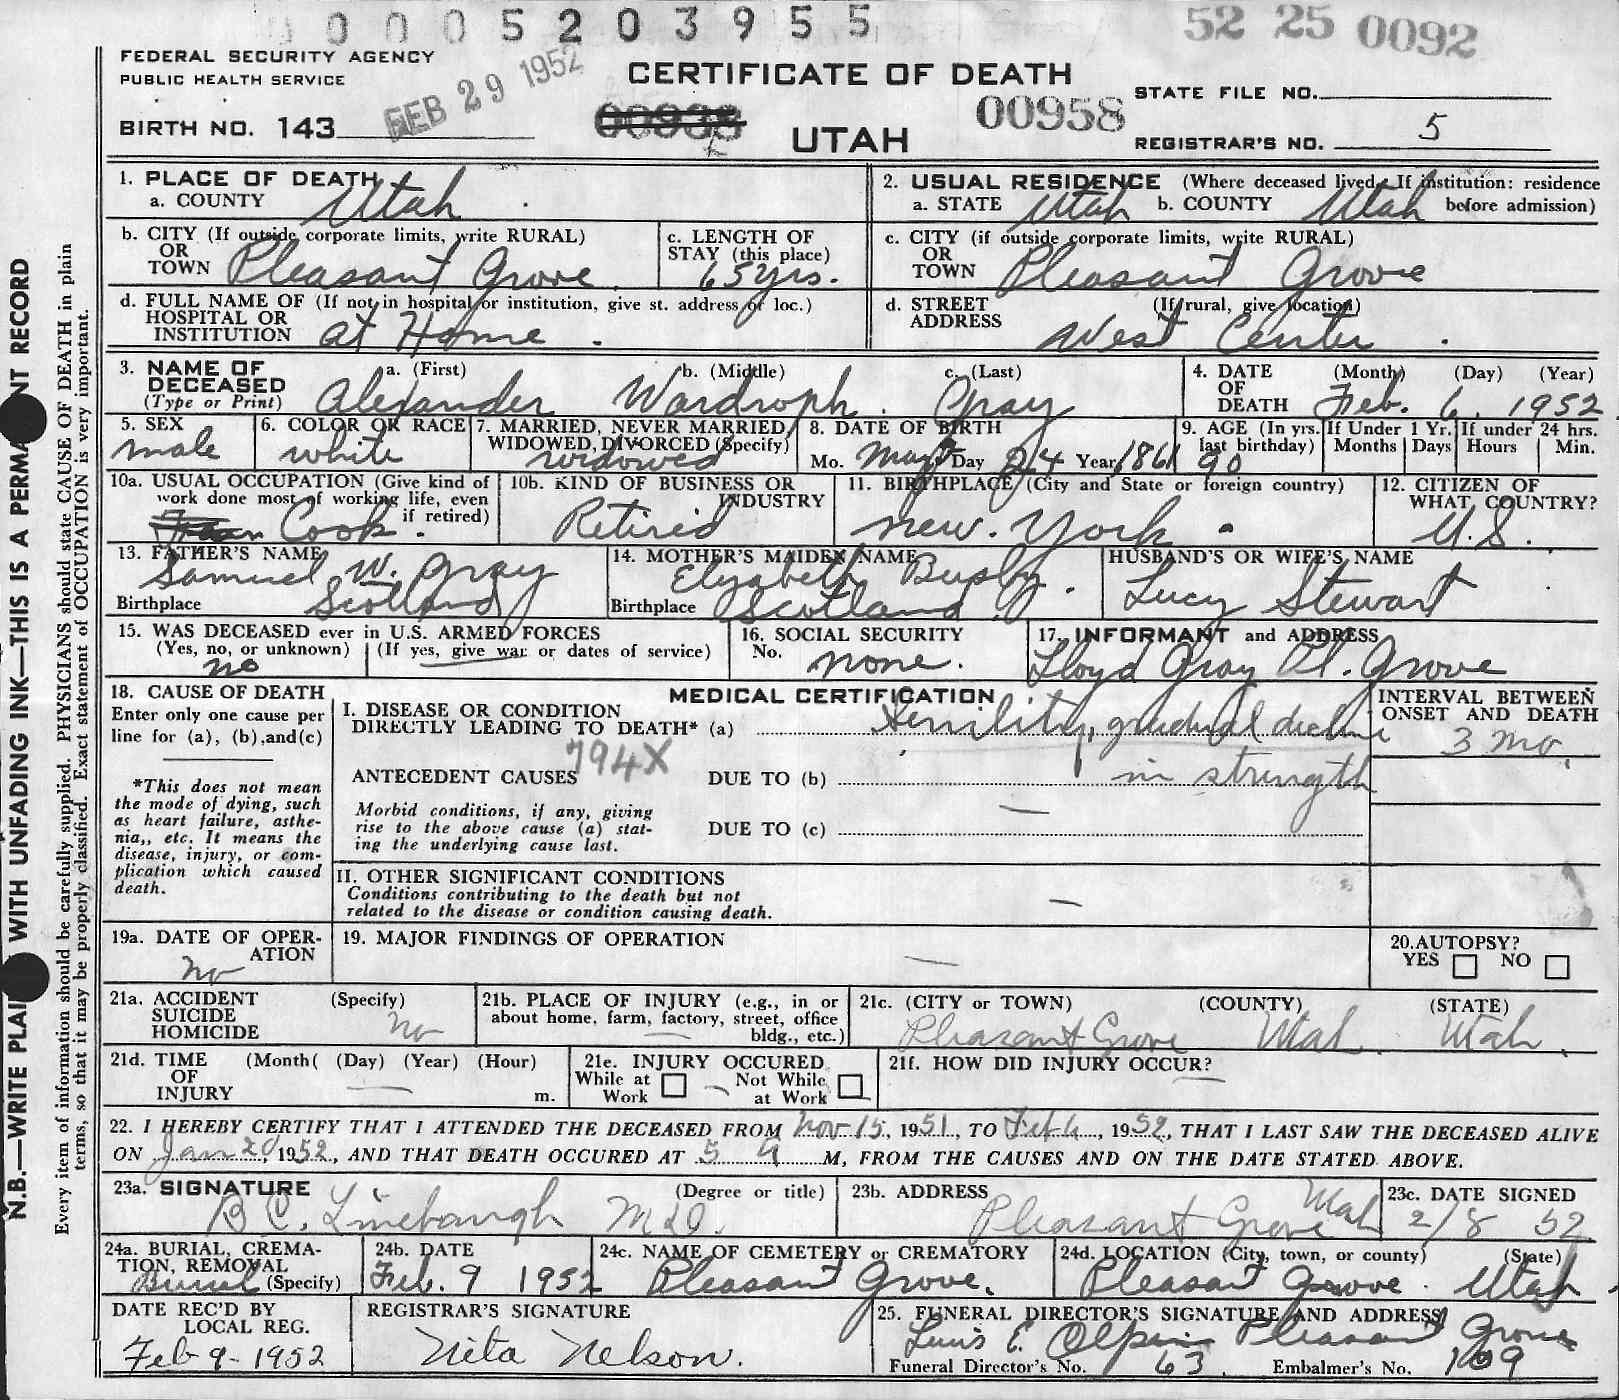 0 0 0 5 2 0 3 9 5 5
52 25 0092
FEDERAL SECURITY AGENCY
PUBLIC HEALTH SERVICE
FEB 29 1952
CERTIFICATE OF DEATH
STATE FILE NO.
BIRTH NO. 143
00938
UTAH
00958
REGISTRAR'S NO. 5
1. PLACE OF DEATH
a. COUNTY Utah
2. USUAL RESIDENCE (Where deceased lived. If institution: residence
a. STATE Utah b. COUNTY Utah before admission)
b. CITY (If outside corporate limits, write RURAL)
OR
TOWN Pleasant Grove
c. LENGTH OF
STAY (this place)
65 yrs.
c. CITY (if outside corporate limits, write RURAL)
OR
TOWN Pleasant Grove
d. FULL NAME OF (If not in hospital or institution, give st. address or loc.)
HOSPITAL OR
INSTITUTION at Home.
d. STREET (If rural, give location)
ADDRESS West Center.
3. NAME OF a. (First) b. (Middle) c. (Last)
DECEASED
(Type or Print) Alexander Wardroph. Gray
4. DATE (Month) (Day) (Year)
OF
DEATH Feb. 6, 1952
5. SEX
male
6. COLOR OR RACE
white
7. MARRIED, NEVER MARRIED,
WIDOWED, DIVORCED (Specify)
widowed
8. DATE OF BIRTH
Mo. May Day 24 Year 1861
9. AGE (In yrs.
last birthday)
90
If Under 1 Yr.
Months Days
If under 24 hrs.
Hours Min.
10a. USUAL OCCUPATION (Give kind of
work done most of working life, even
if retired)
Cook.
10b. KIND OF BUSINESS OR
INDUSTRY
Retired
11. BIRTHPLACE (City and State or foreign country)
New. York
12. CITIZEN OF
WHAT COUNTRY?
U.S.
13. FATHER'S NAME
Samuel W. Gray
Birthplace Scotland
14. MOTHER'S MAIDEN NAME
Elizabeth Busby.
Birthplace Scotland
HUSBAND'S OR WIFE'S NAME
Lucy Stewart
15. WAS DECEASED ever in U.S. ARMED FORCES
(Yes, no, or unknown) (If yes, give war or dates of service)
no
16. SOCIAL SECURITY
No. none.
17. INFORMANT and ADDRESS
Lloyd Gray Pl. Grove
18. CAUSE OF DEATH
Enter only one cause per
line for (a), (b),and(c)
*This does not mean
the mode of dying, such
as heart failure, asthe-
nia,, etc. It means the
disease, injury, or com-
plication which caused
death.
MEDICAL CERTIFICATION
I. DISEASE OR CONDITION
DIRECTLY LEADING TO DEATH* (a) Senility, gradual decline
794X
ANTECEDENT CAUSES DUE TO (b) in strength
Morbid conditions, if any, giving
rise to the above cause (a) stat-
ing the underlying cause last.
DUE TO (c)
INTERVAL BETWEEN
ONSET AND DEATH
3 mo.
II. OTHER SIGNIFICANT CONDITIONS
Conditions contributing to the death but not
related to the disease or condition causing death.
19a. DATE OF OPER-
ATION
no
19. MAJOR FINDINGS OF OPERATION
20.AUTOPSY?
YES NO
21a. ACCIDENT (Specify)
SUICIDE
HOMICIDE
no
21b. PLACE OF INJURY (e.g., in or
about home, farm, factory, street, office
bldg., etc.)
21c. (CITY or TOWN) (COUNTY) (STATE)
Pleasant Grove Utah. Utah.
21d. TIME (Month( (Day) (Year) (Hour)
OF
INJURY m.
21e. INJURY OCCURED
While at Work Not While at Work
21f. HOW DID INJURY OCCUR?
22. I HEREBY CERTIFY THAT I ATTENDED THE DECEASED FROM Nov 15, 1951, TO Feb 6, 1952, THAT I LAST SAW THE DECEASED ALIVE
ON Jan 20, 1952, AND THAT DEATH OCCURED AT 5 A M, FROM THE CAUSES AND ON THE DATE STATED ABOVE.
23a. SIGNATURE (Degree or title)
B C. Linebaugh M.D.
23b. ADDRESS
Pleasant Grove Utah
23c. DATE SIGNED
2/8 52
24a. BURIAL, CREMA-
TION, REMOVAL
Burial (Specify)
24b. DATE
Feb. 9 1952
24c. NAME OF CEMETERY or CREMATORY
Pleasant Grove.
24d. LOCATION (City, town, or county) (State)
Pleasant Grove. Utah
DATE REC'D BY
LOCAL REG.
Feb 9-1952
REGISTRAR'S SIGNATURE
Nita Nelson.
25. FUNERAL DIRECTOR'S SIGNATURE AND ADDRESS
E. Olpin Pleasant Grove
Funeral Director's No. 63 Embalmer's No. 109
N.B.—WRITE PLAI WITH UNFADING INK—THIS IS A PERMA NT RECORD
Every item of information should be carefully supplied. PHYSICIANS should state CAUSE OF DEATH in plain
terms, so that it may be properly classified. Exact statement of OCCUPATION is very important.